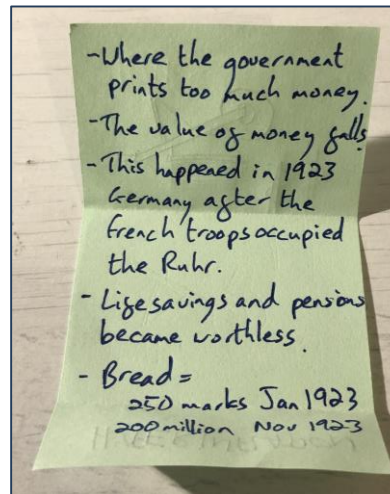 - Where the government
prints too much money.
- The value of money falls
- This happened in 1923
Germany after the
French troops occupied
the Ruhr.
- Life savings and pensions
became worthless.
- Bread =
250 marks Jan 1923
200 million Nov 1923